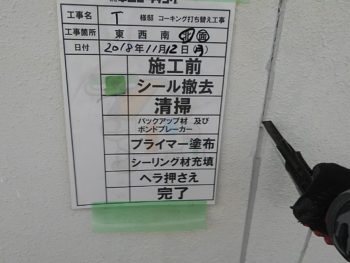 工事名 T 様邸 コーキング打ち替え工事
工事箇所 東 西 南 北 面
日付 2018年11月12日(月)
施工前
シール撤去
清掃
バックアップ材 及び
ボンドブレーカー
プライマー塗布
シーリング材充填
ヘラ押さえ
完了